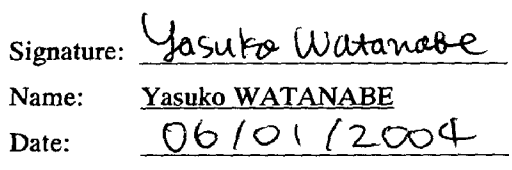 Signature: Yasuko Watanabe
Name: Yasuko WATANABE
Date: 06/01/2004